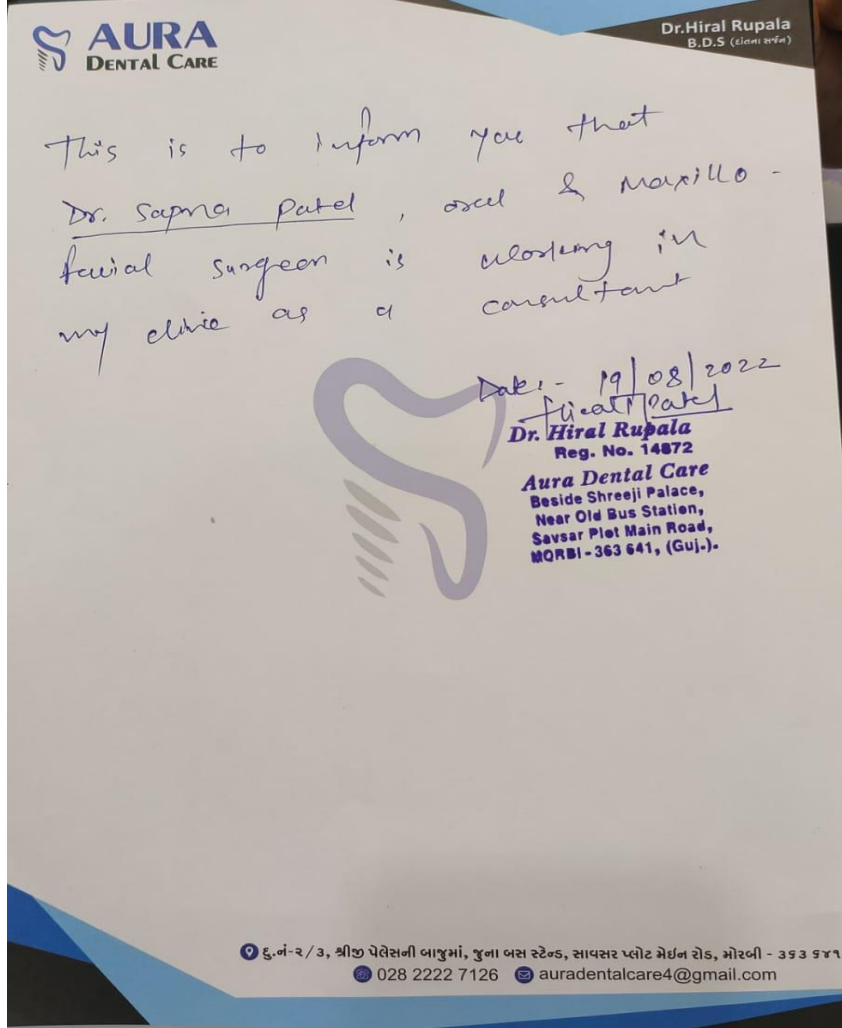 AURA
DENTAL CARE
Dr.Hiral Rupala
B.D.S (દાંતના સર્જન)
This is to inform you that
Dr. Sapna Patel, oral & Maxillo-
facial surgeon is working in
my clinic as a consultant
Date:- 19/08/2022
Hiral Patel
Dr. Hiral Rupala
Reg. No. 14872
Aura Dental Care
Beside Shreeji Palace,
Near Old Bus Station,
Savsar Plot Main Road,
MORBI - 363 641, (Guj.).
દુ.નં-૨/૩, શ્રીજી પેલેસની બાજુમાં, જુના બસ સ્ટેન્ડ, સાવસર પ્લોટ મેઈન રોડ, મોરબી - ૩૬૩ ૬૪૧
028 2222 7126 auradentalcare4@gmail.com